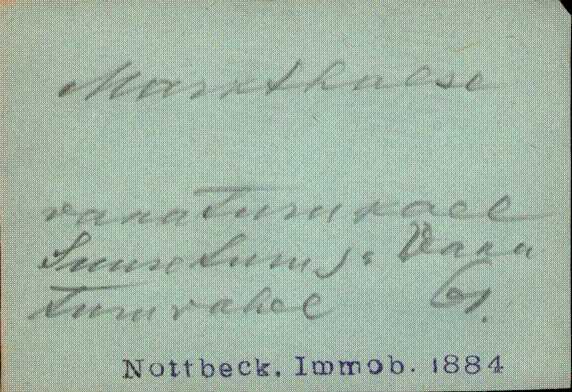 Markthalse
vanaturu kael
Suure turu j. Vana
turu vahel 61.
Nottbeck, Immob. 1884